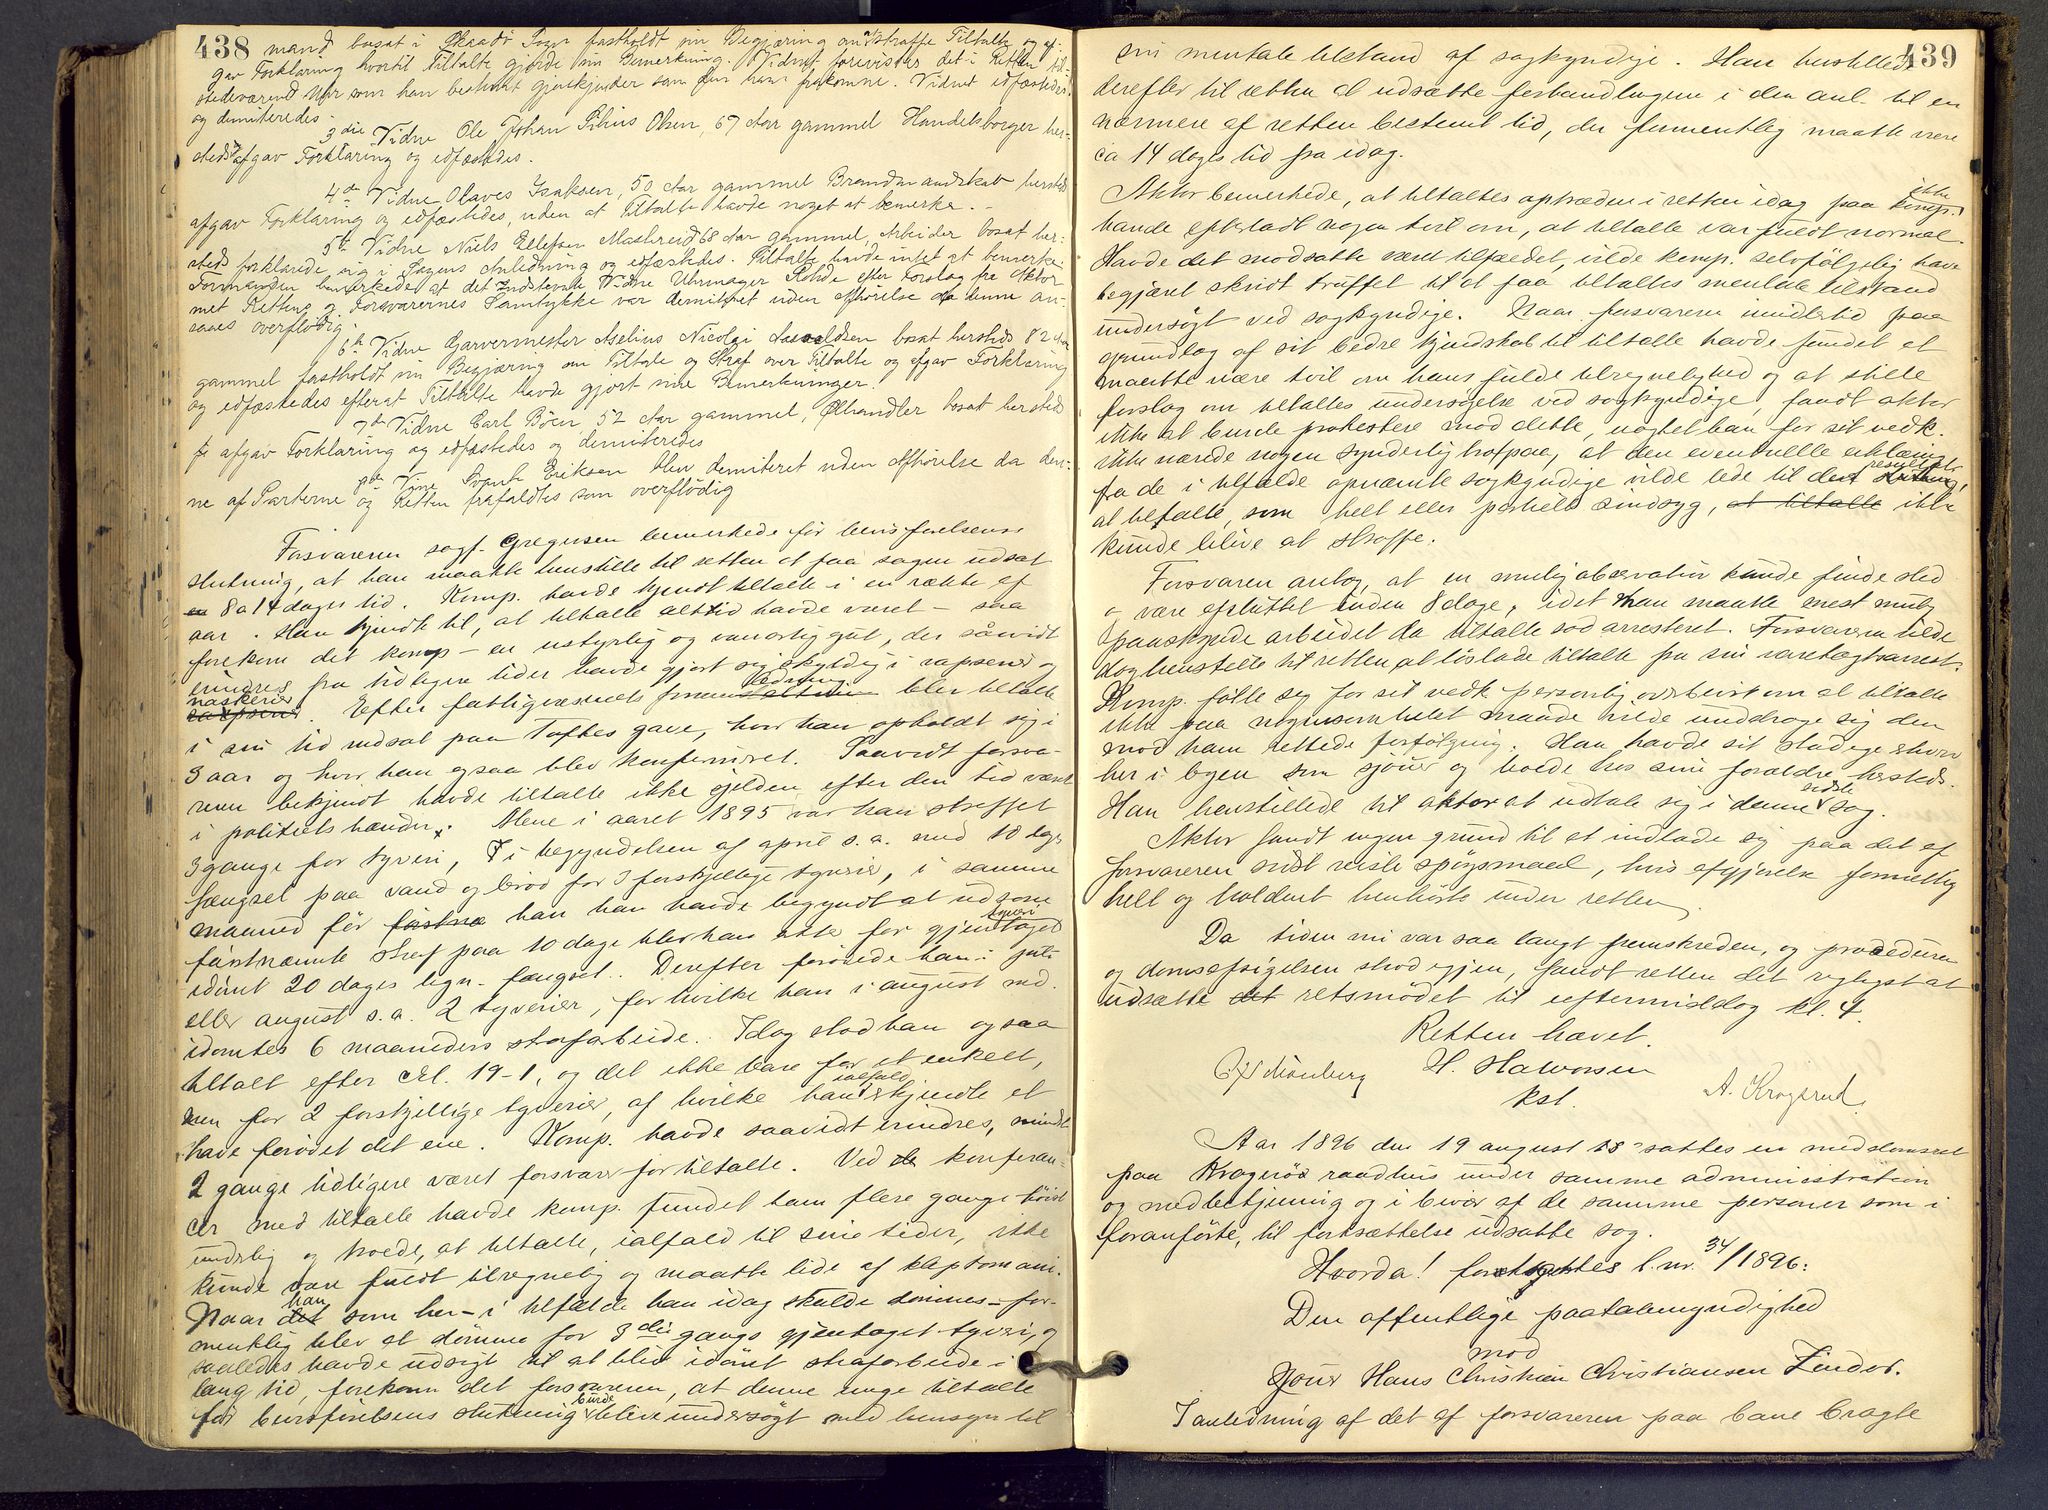 438 mand bosat i Skaadö Sogn fastholdt sin Begjæring om at straffe Tiltalte og af-
gav Forklaring hvortil Tiltalte gjorde sin Bemerkning. Vidnet forevistes det i Retten til-
stedeværend Uhr som han bestemt gjenkjender som den ham frakomne. Vidnet edfæstedes
og demiteredes.
3die Vidne Ole Johan Olsen, 67 Aar gammel Handelsborger her-
steds afgav Forklaring og edfæstedes.
4de Vidne Olaves Isaksen, 50 Aar gammel Brandmandskab hersteds
afgav Forklaring og edfæstedes, uden at Tiltalte havde noget at bemerke.-
5te Vidne Niels Ellefsen 68 Aar gammel, Arbeider bosat her-
steds forklarede sig i Sagens Anledning og edfæstedes. Tiltalte havde intet at bemerke.
Formanden bemerkede at det Indstevnte Vidne Uhrmager Rohde efter Forslag fra Aktor
met Rettens og Forsvarernes Samtykke var demiteret uden Afhørelse da denne an-
saaes overflødig.
6te Vidne Garvermester Aselius Nicolai bosat hersteds 82 Aar
gammel fastholdt sin Begjæring om Tiltale og Straf over Tiltalte og afgav Forklaring
og edfæstedes efterat Tiltalte havde gjort sine Bemerkninger.
7de Vidne Carl Böen, 52 Aar gammel, Ølhandler bosat hersteds
afgav Forklaring og edfæstedes og demiteredes
8de Vine Eriksen blev demiteret uden Afhörelse da den-
ne af Parterne og Retten frafaldtes som overflödig
Forsvareren sagf. Gregersen bemerkede för bevisförelsens
slutning, at han maatte henstille til retten at faa sagen udsat
en 8 a 14 dages tid. Komp. havde kjendt tiltalte i en række af
aar. Han kjendte til, at tiltalte altid havde været - saa
forekom det komp - en ustyrlig og vanartig gut, der såvidt
erindres fra tidligere tider havde gjort sig skyldig i rapserier og
naskerier. Efter fattigvæsenets foranledning blev tiltalte
i sin tid udsat paa Toftes gave, hvor han opholdt sig i
3 aar og hvor han ogsaa blev konfirmeret. Saavidt forsva-
reren bekjendt havde tiltalte ikke sjelden efter den tid været
i politiets hænder. Alene i aaret 1895 var han straffet
3 gange for tyveri, i begyndelsen af april s.a. med 10 dgs
fængsel paa vand og bröd for 3 forskjellige tyverier, i samme
maaned för han han havde begyndt at udsone
förstnævnte straf paa 10 dage blev han atter for gjentaget tyveri
idömt 20 dages lign. fængsel. Derefter forövede han i juli
eller august s.a. 2 tyverier, for hvilke han i august md.
idömtes 6 maaneders strafarbeide. Idag stod han ogsaa
tiltalt efter Crl. 19-1, og det ikke bare for et enkelt,
men for 2 forskjellige tyverier, af hvilke han ialfald erkjendte at
have forövet det ene. Komp. havde saavidt erindres, mindst
2 gange tidligere været forsvarer for tiltalte. Ved de konferan-
cer med tiltalte havde komp. fundet ham flere gange höist
underlig og troede, at tiltalte, ialfald til sine tider, ikke
kunde være fuldt tilregnelig og maatte lide af kleptomani.
Naar han som her - i tilfælde han idag skulde dömmes - for-
mentlig blev at dömme for 3die gangs gjentaget tyveri, og
saaledes havde udsigt til at blive idömt strafarbeide i
lang tid, forekom det forsvareren, at denne unge tiltalte
för bevisförelsens slutning burde blive undersögt med hensyn til
439
sin mentale tilstand af sagkyndige. Han henstillede
derefter til retten at udsætte forhandlingene i den anl. til en
nærmere af retten bestemt tid, der formentlig maatte være
ca 14 dages tid fra idag.
Aktor bemerkede, at tiltaltes optræden i retten idag paa komp. ikke
havde efterladt nogen tvil om, at tiltalte var fuldt normal.
Havde det modsatte været tilfældet, vilde komp. selvfölgelig have
begjæret skridt truffet til at faa tiltaltes mentale tilstand
undersögt ved sagkyndige. Naar forsvareren imidlertid paa
grundlag af sit bedre kjendskab til tiltalte havde fundet at
maatte nære tvil om hans fulde tilregnelighed og at stille
forslag om tiltaltes undersögelse ved sagkyndige, fandt aktor
ikke at burde protestere mod dette, uagtet han for sit vedk.
ikke nærede nogen synderlig tro paa, at den eventuelle erklæring
fra de i tilfælde opnævnte sagkyndige vilde lede til det resultat,
at tiltalte, som helt eller partielt sindsyg, at tiltalte ikke
kunde blive at straffe.
Forsvareren antog, at en mulig observation kunde finde sted
og være afsluttet inden 8 dage, idet man maatte mest mulig
paaskynde arbeidet da tiltalte sad arresteret. Forsvareren vilde
dog henstille til retten, at löslade tiltalte fra sin varetægtsarrest.
Komp. fölte sig for sit vedk. personlig overbevist om at tiltalte
ikke paa nogensomhelst maade vilde unddrage sig den
mod ham rettede forfölgning. Han havde sit stadige erhverv
her i byen som sjouer og boede hos sine forældre hersteds.
Han henstillede til aktor at udtale sig i denne sidste sag.
Aktor fandt ingen grund til at indlade sig paa det af
forsvareren sidst reiste spörgsmaal, hvis afgjörelse formentlig
helt og holdent henhörte under retten.
Da tiden nu var saa langt fremskreden, og proceduren
og domsafsigelsen stod igjen, fandt retten det rigtigst at
udsætte det retsmödet til eftermiddag kl. 4.
Retten hævet.
Schönberg H. Halvorsen A. Krogsrud
kst.
Aar 1896 den 19 august sattes en meddomsret
paa Kragerös raadhus under samme administration
og medbetjening og i bivær af de samme personer som i
foranförte, til fortsættelse udsatte sag.
Hvorda! foretoges l.nr. 34/1896:
Den offentlige paatalemyndighed
mod
Sjouer Hans Christian Christiansen Linder.
I anledning af det af forsvareren paa bane bragte